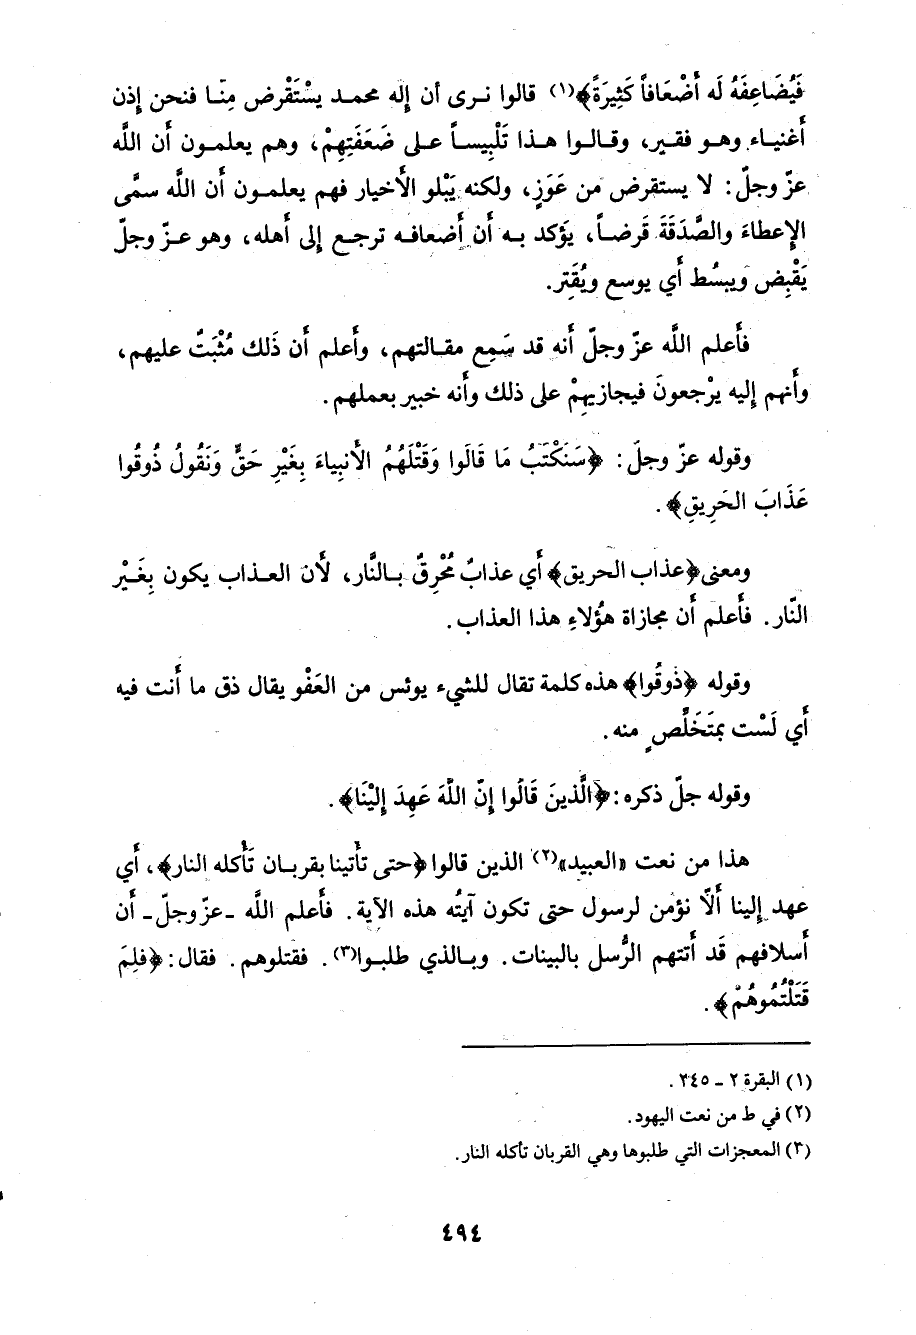 فَيُضَاعِفَهُ لَه أَضْعَافاً كَثِيرَةً﴾(١) قالوا نرى أن إله محمد يسْتَقْرض مِنّا فنحن إذن
أغنياء وهو فقير، وقالوا هذا تَلْبِيساً على ضَعَفَتِهِمْ، وهم يعلمون أن اللَّه
عزّ وجلّ: لا يستقرض من عَوَزٍ، ولكنه يَبْلو الأخيار فهم يعلمون أن اللَّه سمَّى
الإعطاءَ والصَّدَقَةَ قَرضاً، يؤكد به أن أضعافه ترجع إلى أهله، وهو عزّ وجلّ
يَقْبِض ويبسُط أي يوسع ويُقَتِر.
فأعلم اللَّه عزّ وجلّ أنه قد سَمِع مقالتهم، وأعلم أن ذلك مُثْبَتٌ عليهم،
وأنهم إليه يرْجعونَ فيجازيهِمْ على ذلك وأنه خبير بعملهم.
وقوله عزّ وجلّ: ﴿سَنَكْتَبُ مَا قَالَوا وَقَتْلَهُمُ الأَنبِيَاءَ بِغَيْرِ حَقٍّ وَنَقُولُ ذُوقُوا
عَذَابَ الحَرِيقِ﴾.
ومعنى ﴿عذاب الحريق﴾ أي عذابٌ مُحْرِقٌ بالنَّار، لأن العذاب يكون بِغَيْر
النّار. فأعلم أن مجازاة هؤلاءِ هذا العذاب.
وقوله ﴿ذوقُوا﴾ هذه كلمة تقال للشيء يوئس من العَفْو يقال ذق ما أنت فيه
أي لَسْت بمتَخَلِّصٍ منه.
وقوله جلّ ذكره: ﴿الَّذينَ قَالُوا إنّ اللَّهَ عَهِدَ إلَيْنَا﴾.
هذا من نعت «العبيد»(٢) الذين قالوا ﴿حتى تأتينا بقربان تَأكله النار﴾، أي
عهد إلينا ألّا نؤمن لرسول حتى تكون آيتُه هذه الآية. فأعلم اللَّه -عزّ وجلّ- أن
أسلافهم قَد أتتهم الرُّسل بالبينات. وبالذي طلبوا(٣). فقتلوهم. فقال: ﴿فلِمَ
قَتَلْتُمُوهُمْ﴾.
(١) البقرة ٢ - ٢٤٥.
(٢) في ط من نعت اليهود.
(٣) المعجزات التي طلبوها وهي القربان تأكله النار.
٤٩٤